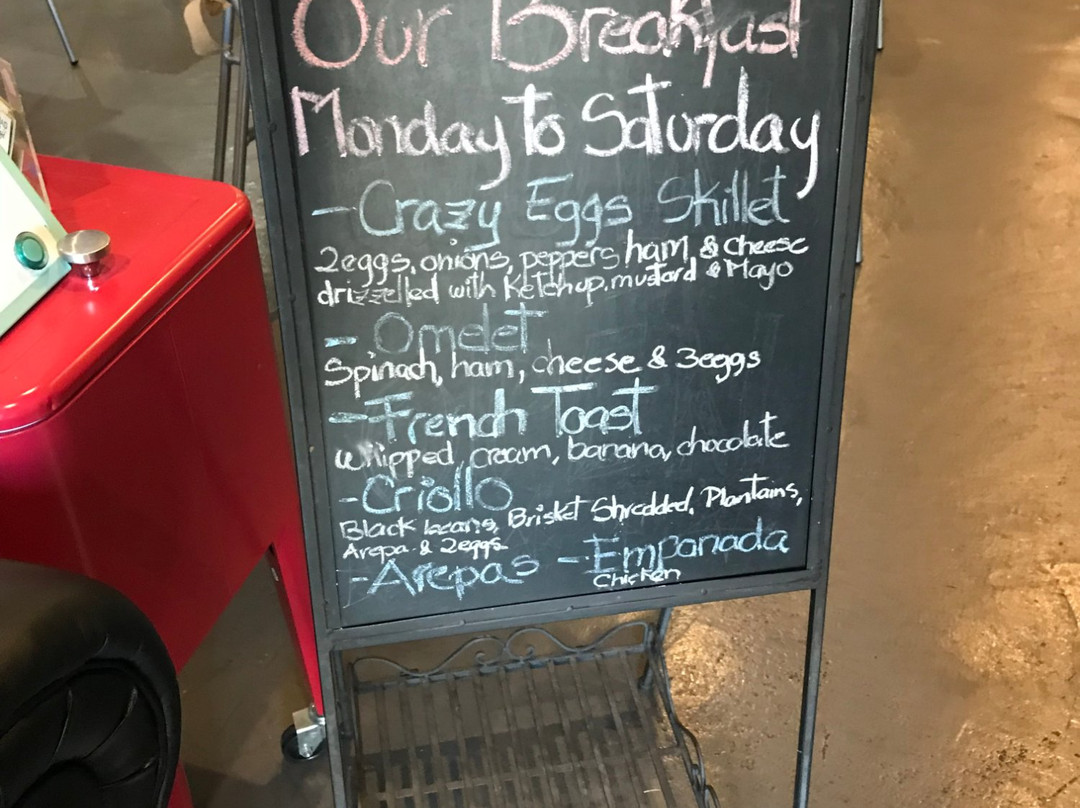 Our Breakfast
Monday to Saturday
- Crazy Eggs Skillet
2eggs, onions, peppers ham & cheese
drizzelled with Ketchup, mustard & Mayo
- Omelet
Spinach, ham, cheese & 3eggs
- French Toast
whipped cream, banana, chocolate
- Criollo
Black beans, Brisket Shredded, Plantains,
Arepa & 2eggs
- Arepas - Empanada
Chicken